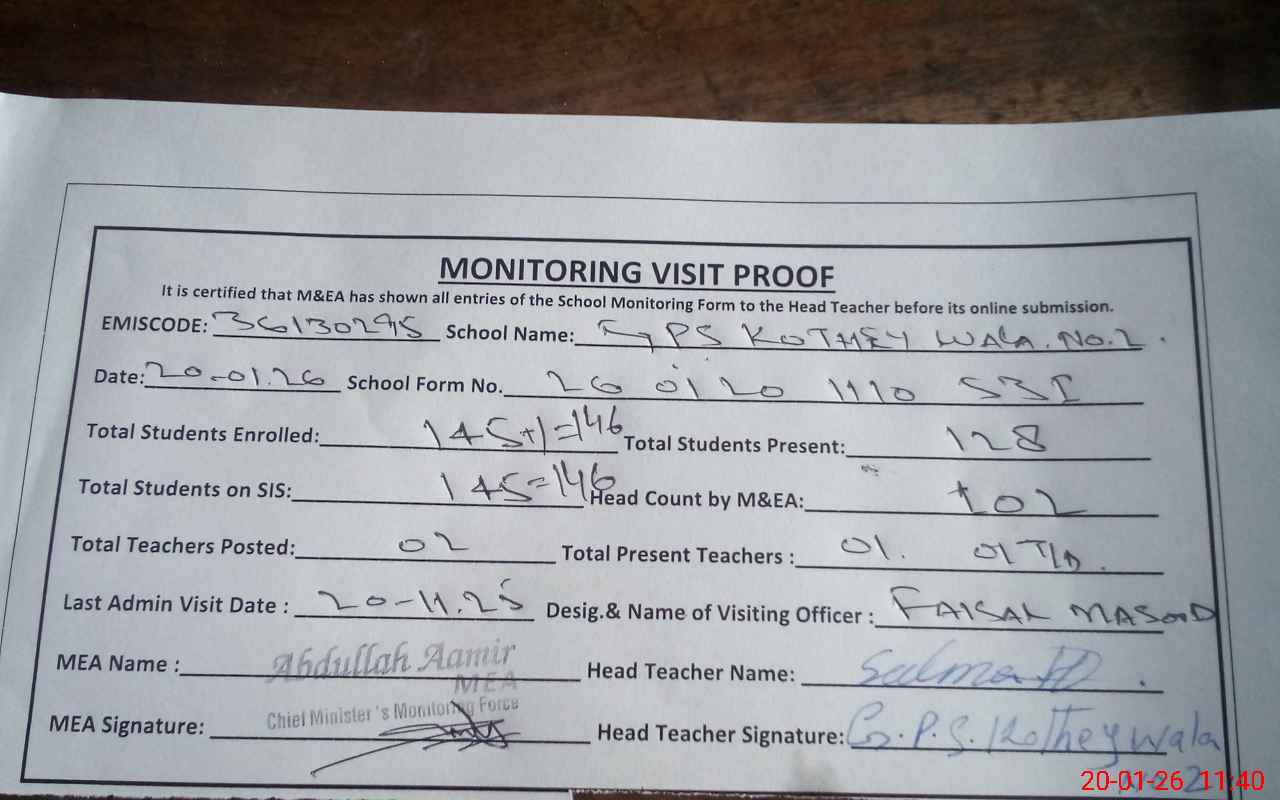 MONITORING VISIT PROOF
It is certified that M&EA has shown all entries of the School Monitoring Form to the Head Teacher before its online submission.
EMISCODE: 36130295 School Name: GPS KOTHEY WALA. NO. 2.
Date: 20-01.26 School Form No. 26 01 20 1110 531
Total Students Enrolled: 145+1=146 Total Students Present: 128
Total Students on SIS: 145=146 Head Count by M&EA: 102
Total Teachers Posted: 02 Total Present Teachers : 01. 01 T/D.
Last Admin Visit Date : 20-11.25 Desig.& Name of Visiting Officer : FAISAL MASOOD
MEA Name : Abdullah Aamir Head Teacher Name: Salma
MEA
Chief Minister's Monitoring Force
MEA Signature: Head Teacher Signature: G.P.S. Kothey wala
No 2
20-01-26 11:40